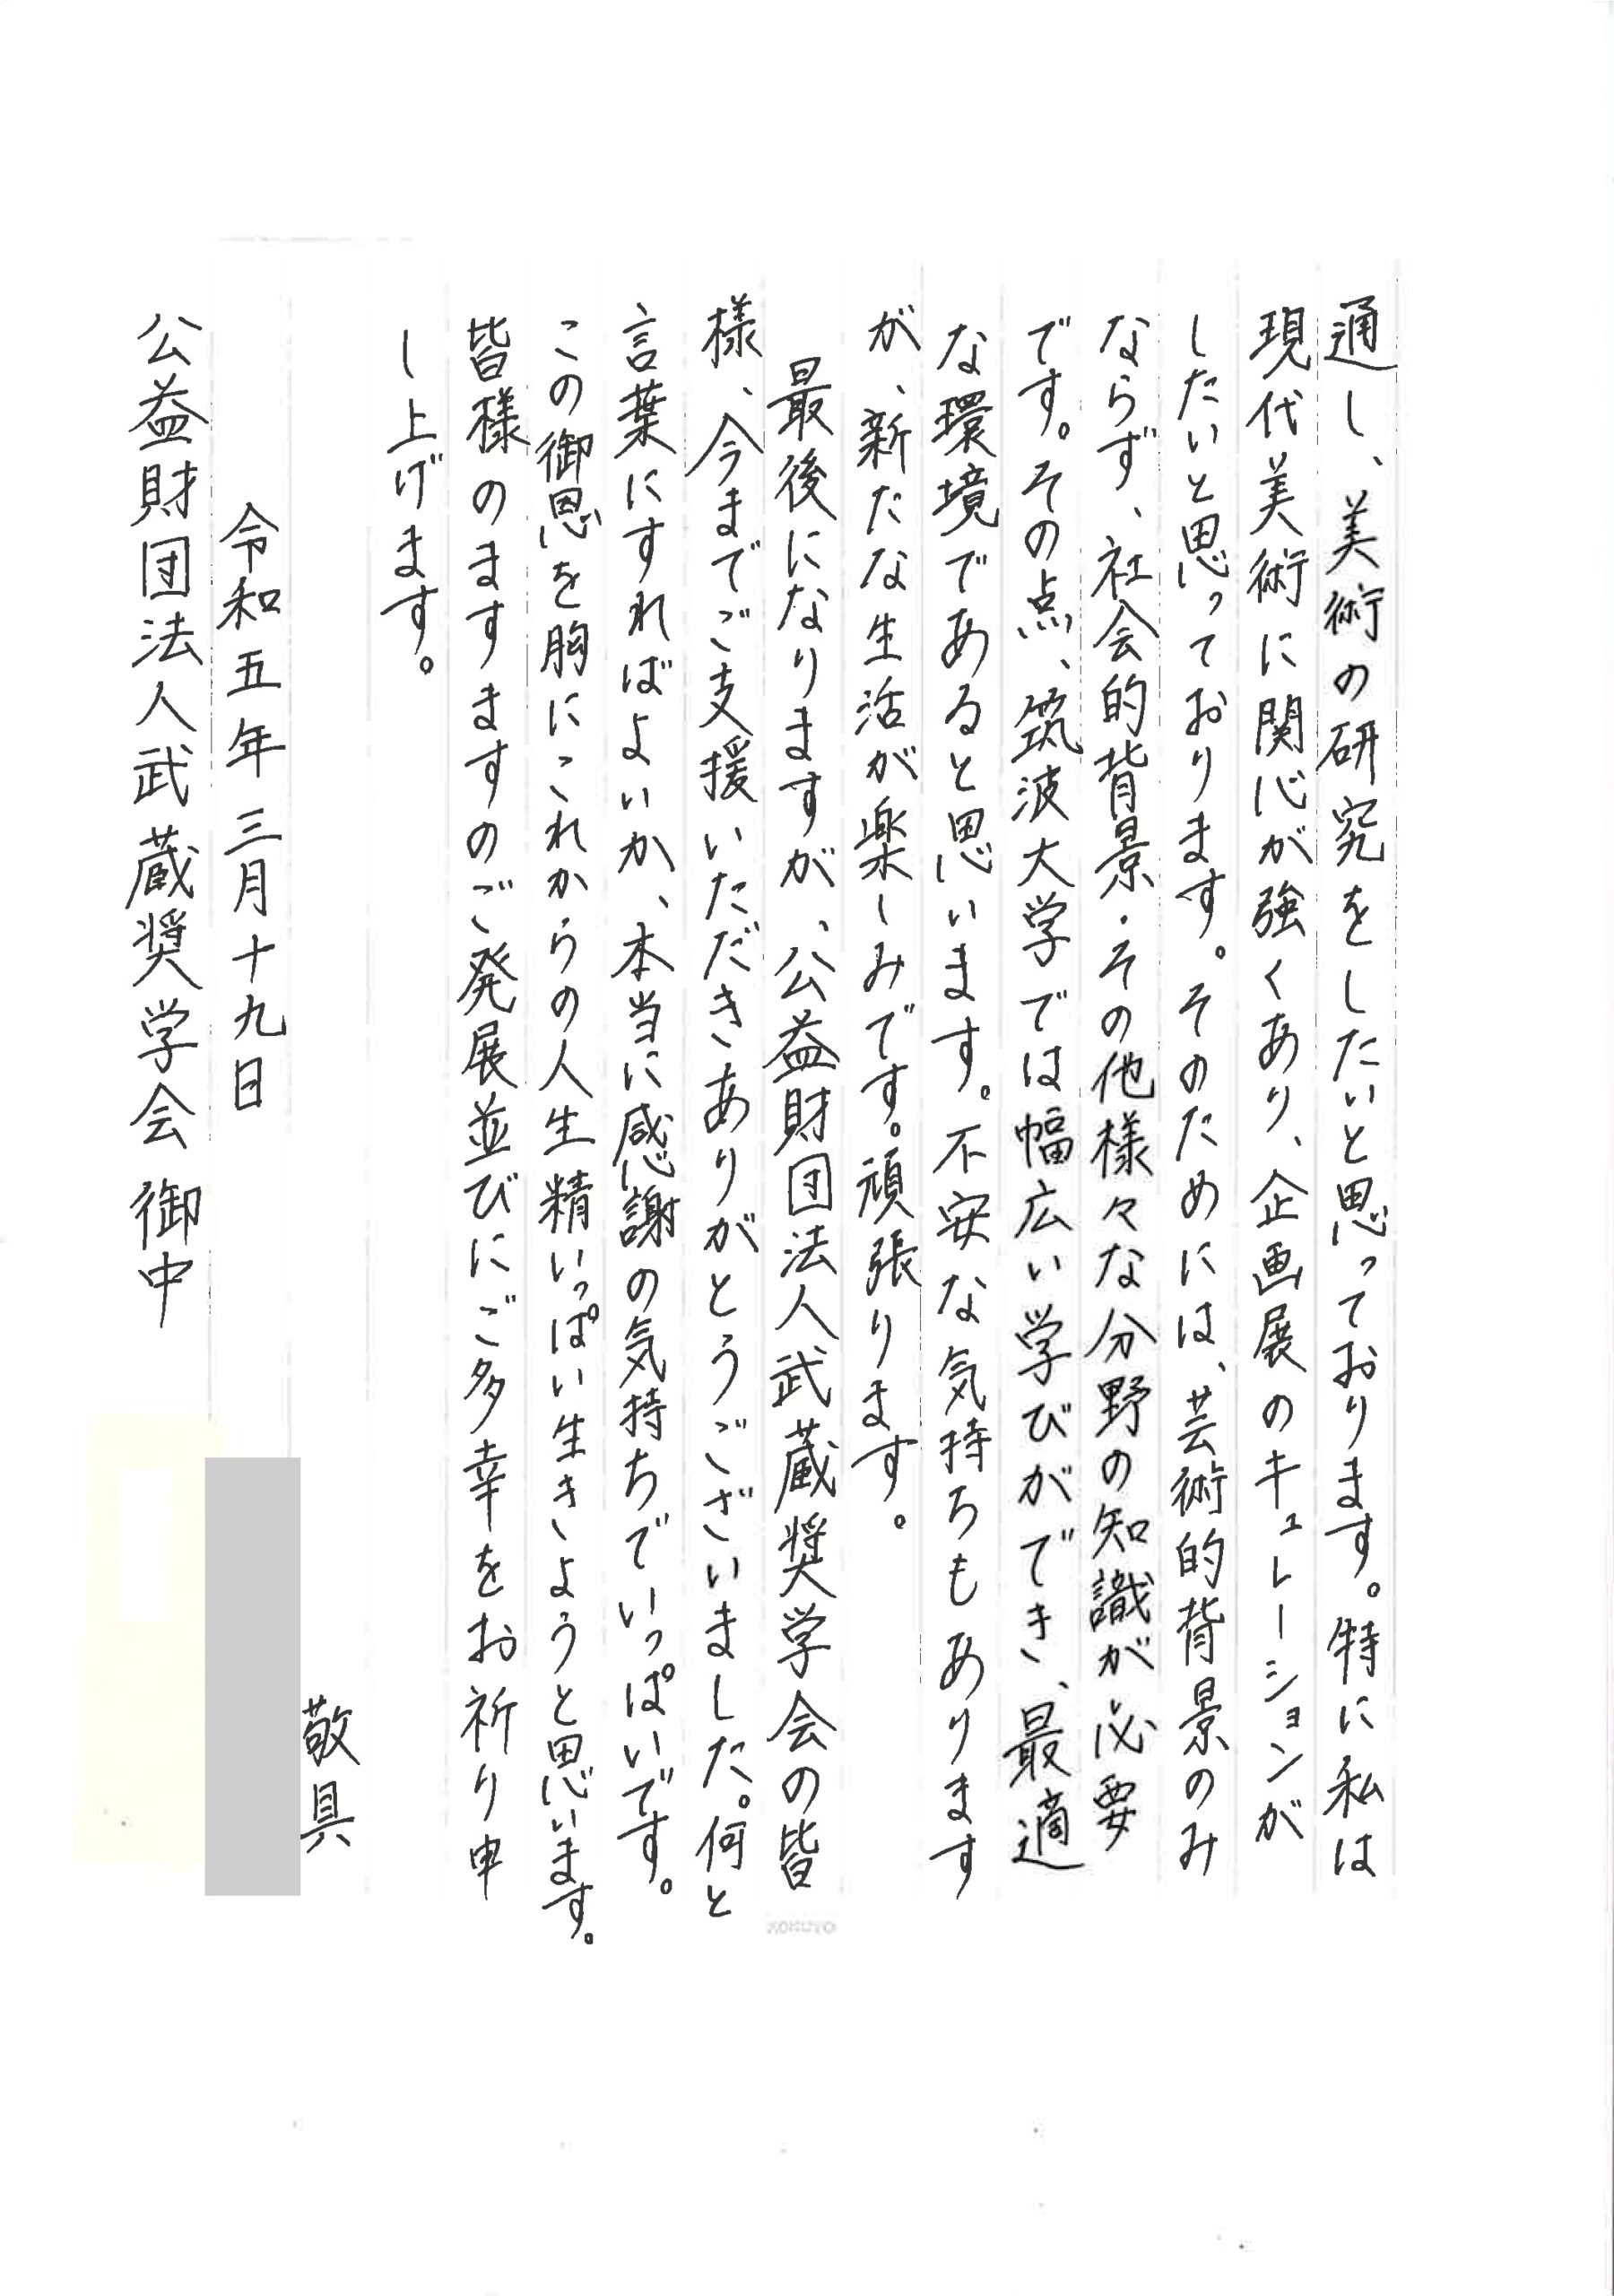 通し、美術の研究をしたいと思っております。特に私は
現代美術に関心が強くあり、企画展のキュレーションが
したいと思っております。そのためには、芸術的背景のみ
ならず、社会的背景・その他様々な分野の知識が必要
です。その点、筑波大学では幅広い学びができ、最適
な環境であると思います。不安な気持ちもあります
が、新たな生活が楽しみです。頑張ります。
最後になりますが、公益財団法人武蔵奨学会の皆
様、今までご支援いただきありがとうございました。何と
言葉にすればよいか、本当に感謝の気持ちでいっぱいです。
この御恩を胸にこれからの人生精いっぱい生きようと思います。
皆様のますますのご発展並びにご多幸をお祈り申
し上げます。
敬具
令和五年三月十九日
公益財団法人武蔵奨学会 御中
KOKUYO